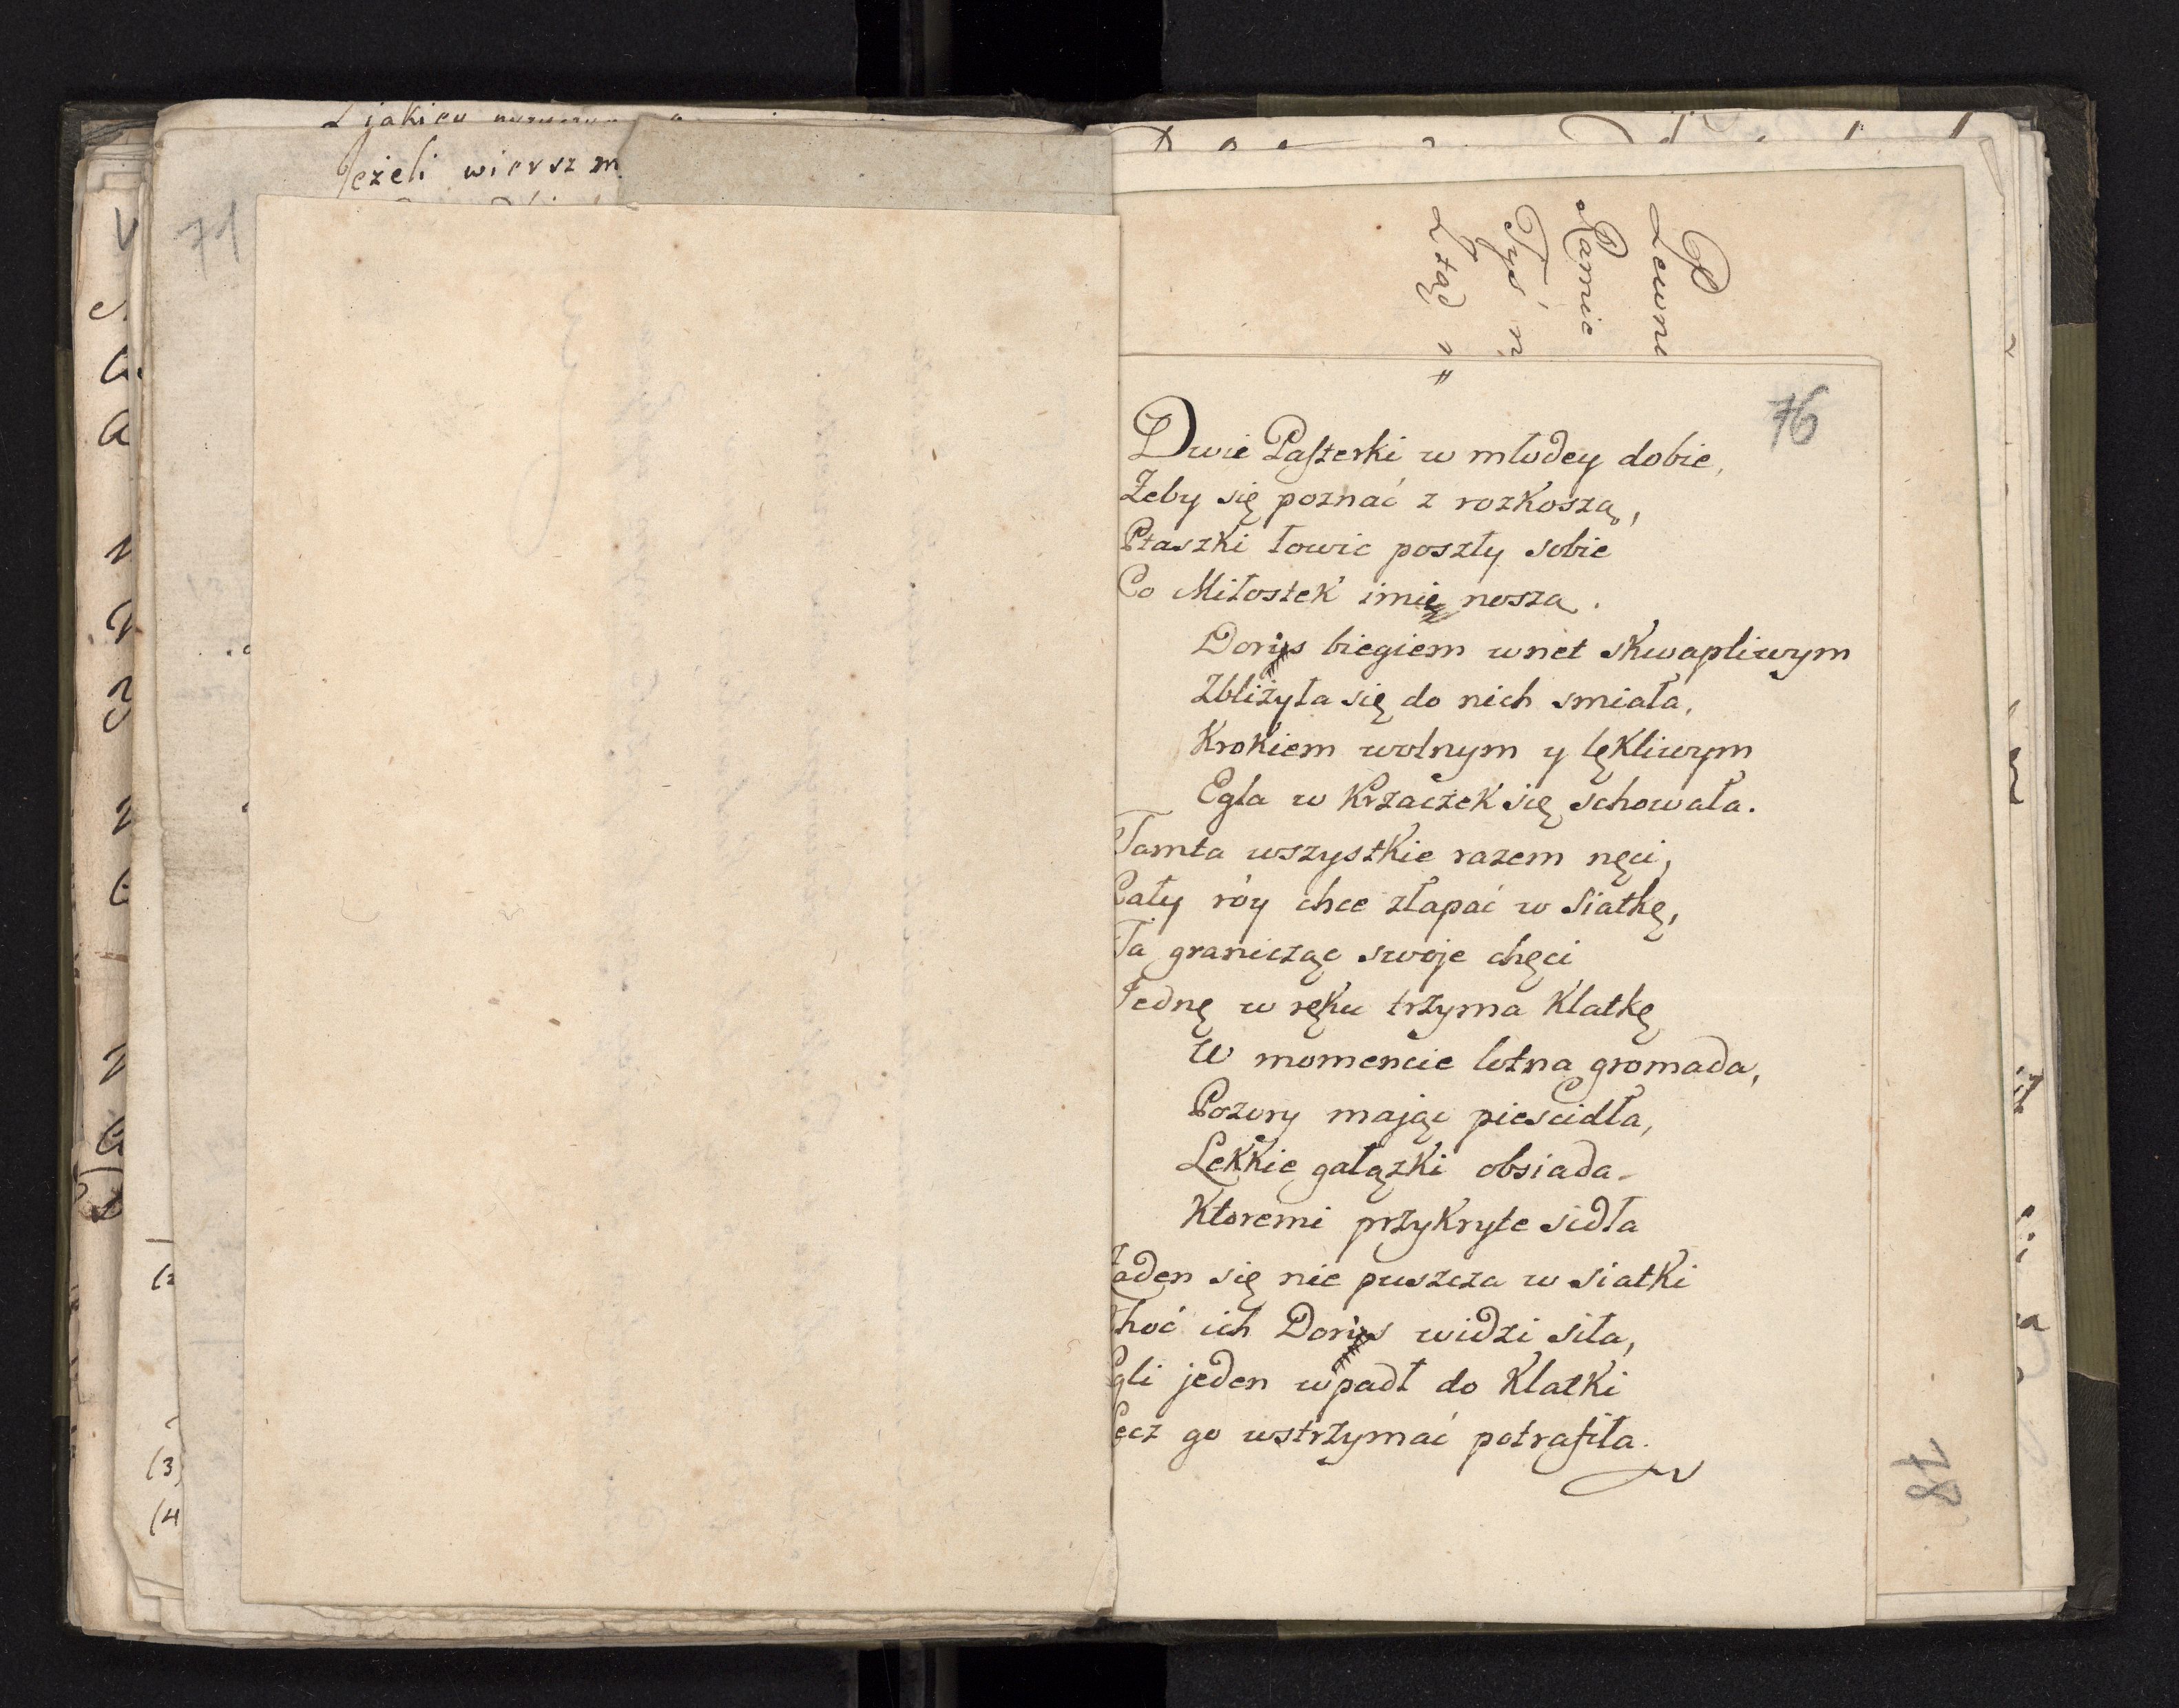 jakiey
Jeżeli wiersz m
71
Pewn
Pamie
Tyś n
Ztąd
76
Dwie Pasterki w młodey dobie,
Żeby się poznać z rozkoszą,
Ptaszki łowic poszły sobie
Co Miłostek imię noszą.
Dorys biegiem wnet skwapliwym
Zbliżyła się do nich smiała,
Krokiem wolnym y lękliwym
Egla w Krzaczek się schowała.
Tamta wszystkie razem nęci,
Cały róy chce złapać w Siatkę,
Ta granicząc swoje chęci
Jednę w ręku trzyma Klatkę
W momencie lotna gromada,
Pozory mając piescidła,
Lekkie gałązki obsiada
Ktoremi przykryte sidła
Żaden się nie puszcza w siatki
Choć ich Dorys widzi siła,
Egli jeden wpadł do Klatki
Lecz go wstrzymać potrafiła.
78
(3)
(4